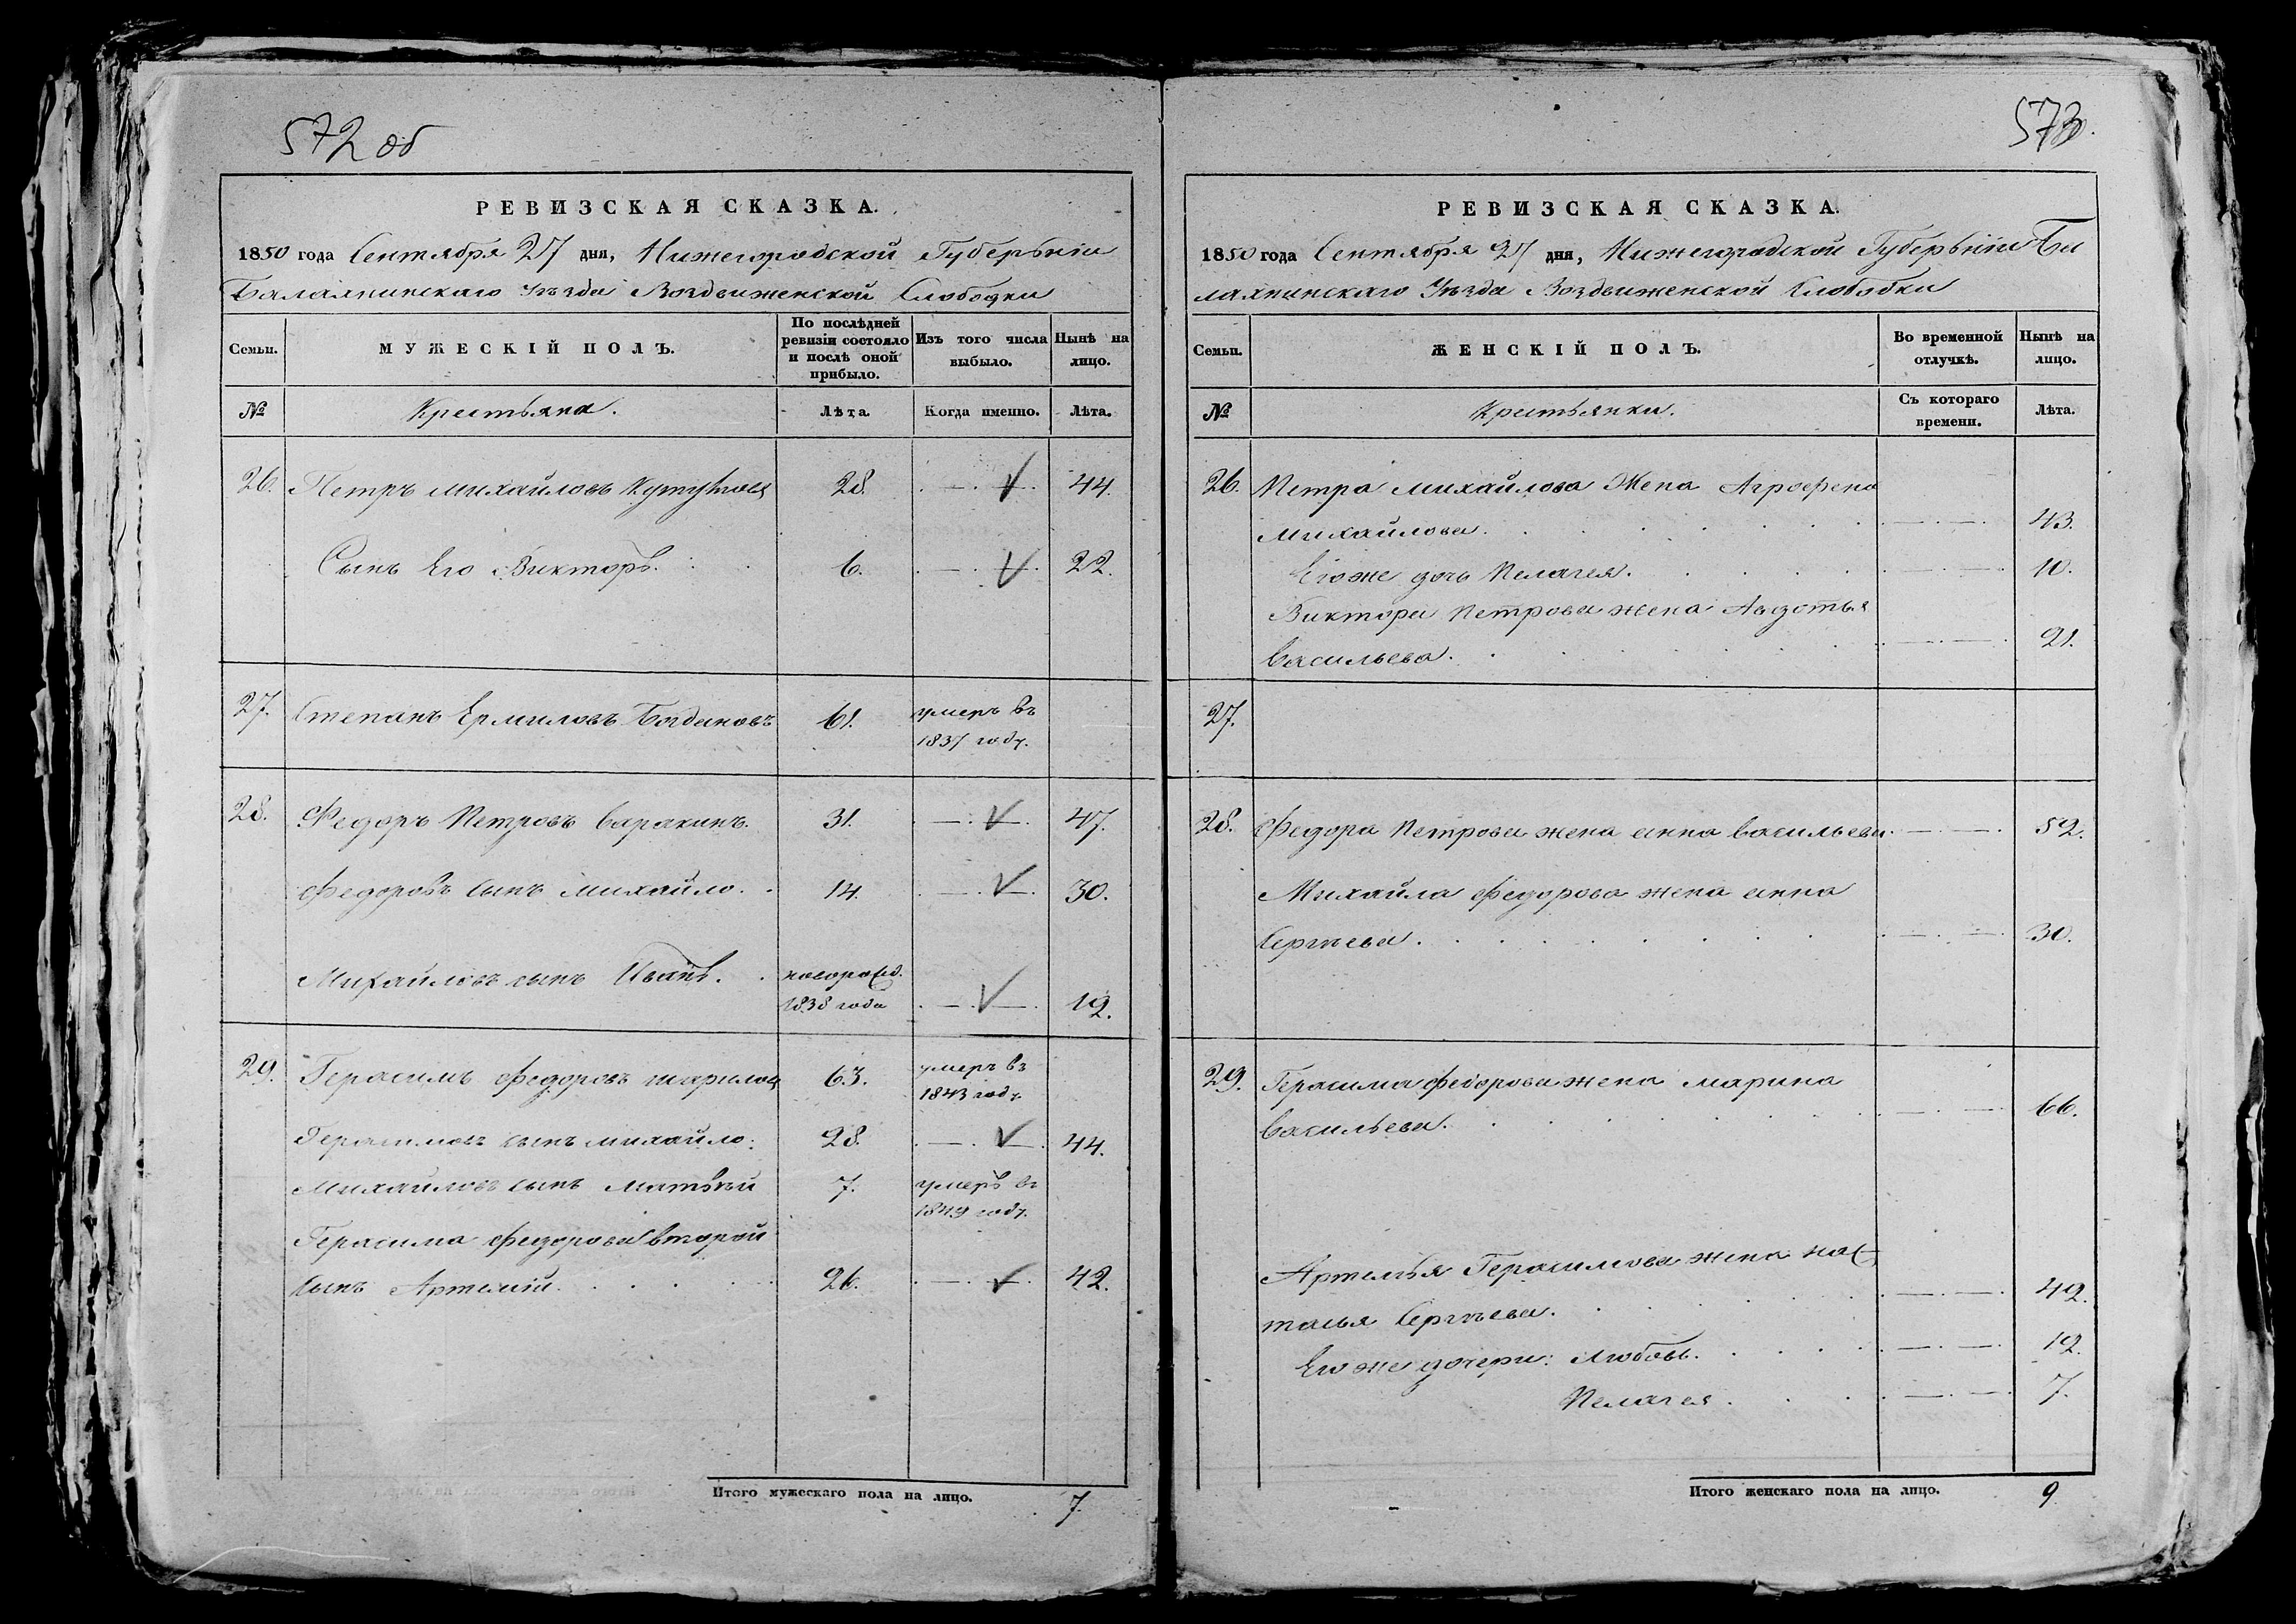 572 об
РЕВИЗСКАЯ СКАЗКА.
1850 года Сентября 27 дни, Нижегородской Губерьніи
Балахнинскаго Уѣзда Воздвиженской Слободки
Семьи.
МУЖЕСКІЙ ПОЛЪ.
По послѣдней ревизіи состояло и послѣ оной прибыло.
Изъ того числа выбыло.
Нынѣ на лицо.
№
Крестьяна.
Лѣта.
Когда именно.
Лѣта.
26. Петръ Михайловъ 28. 44.
Сынъ Его Викторъ. 6. 22.
27. Степанъ Ермиловъ Богдановъ 61. умеръ въ
1837 году.
28. Федоръ Петровъ Саракинъ. 31. 47.
Федоровъ Сынъ Михайло. 14. 30.
Михайловъ сынъ Иванъ. новорожд.
1838 года 12.
29. Герасимъ Федоровъ 63. умеръ въ
1843 году
Герасимовъ сынъ Михайло. 28. 44.
Михайловъ сынъ Матвѣй 7. умеръ въ
1849 году.
Герасима Федорова второй
сынъ Артемій. 26. 42.
Итого мужескаго пола на лицо. 7.
573.
РЕВИЗСКАЯ СКАЗКА.
1850 года Сентября 27 дня, Нижегородской Губерьніи Ба
лахнинскаго Уѣзда Воздвиженской Слободки
Семьи.
ЖЕНСКІЙ ПОЛЪ.
Во временной отлучкѣ.
Нынѣ на лицо.
№
Крестьянки.
Съ котораго времени.
Лѣта.
26. Петра Михайлова Жена Агрофена
Михайлова. 43.
Его же дочь Пелагея. 10.
Виктора Петрова жена Авдотья
Васильева. 21.
27.
28. Федора Петрова жена Анна Васильева. 52.
Михайла Федорова жена Анна
Сергѣева. 30.
29. Герасима Федорова жена Марина
Васильева. 66.
Артемья Герасимова жена Нас
тасья Сергѣева. 42.
Его же дочери: Любовь. 12.
Пелагея. 7.
Итого женскаго пола на лицо. 9